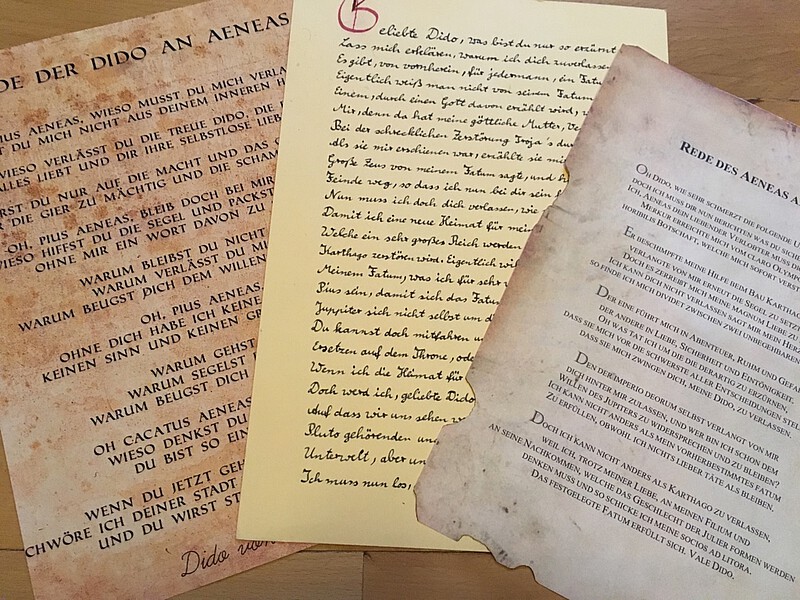 DE DER DIDO AN AENEAS
PIUS AENEAS, WIESO MUSST DU MICH VERLA
T DU MICH NICHT AUS DEINEM INNEREN H
WIESO VERLÄSST DU DIE TREUE DIDO, DIE
ALLES LIEBT UND DIR IHRE SELBSTLOSE LIEB
RST DU NUR AUF DIE MACHT UND DAS G
R DIE GIER ZU MÄCHTIG UND DIE SCHAM
OH, PIUS AENEAS, BLEIB DOCH BEI MIR
WIESO HIFFST DU DIE SEGEL UND PACKST
OHNE MIR EIN WORT DAVON ZU
WARUM BLEIBST DU NICHT
WARUM VERLÄSST DU MI
WARUM BEUGST DICH DEM WILLEN
OH, PIUS AENEAS,
OHNE DICH HABE ICH KEINE
KEINEN SINN UND KEINEN GR
WARUM GEHST
WARUM SEGELST
WARUM BEUGST DICH
OH CACATUS AENEAS
WIESO DENKST DU
DU BIST SO EIN
WENN DU JETZT GEH
CHWÖRE ICH DEINER STADT
UND DU WIRST ST
Dido von
Geliebte Dido, was bist du nur so erzürnt
Lass mich erklären, warum ich dich zuverlassen
Es gibt, von vornherein, für jedermann, ein Fatu
Eigentlich weiß man nicht von seinem Fatum
Einem, durch einen Gott davon erzählt wird,
Mir, denn da hat meine göttliche Mutter, Ve
Bei der schrecklichen Zerstörung Troja's du
Als sie mir erschienen war, erzählte sie mi
Große Zeus von meinem Fatum sagte, und h
Feinde weg, so dass ich nun bei dir sein
Nun muss ich doch dich verlassen, wie
Damit ich eine neue Heimat für mei
Welche ein sehr großes Reich werden
Karthago zerstören wird. Eigentlich wil
Meinem Fatum, was ich für sehr
Pius sein, damit sich das Fatu
Juppiter sich nicht selbst um d
Du kannst doch mitfahren u
Ersetzen auf dem Throne, ode
Wenn ich die Heimat für
Doch werd ich, geliebte Dido
Auf dass wir uns sehen
Pluto gehörenden un
Unterwelt, aber un
Ich muss nun los,
REDE DES AENEAS A
OH DIDO, WIE SEHR SCHMERZT DIE FOLGENDE U
DOCH ICH MUSS DIR NUN BERICHTEN WAS DU SICHE
ICH, AENEAS DEIN LIEHENDER VERLOBTER MUSS DI
MERKUR ERREICHTE MICH VOM CLARO OLYMP
HORIBILIS BOTSCHAFT, WELCHE MICH SOFORT VERST
ER BESCHIMPFTE MEINE HILFE BEIM BAU KARTHAG
VERLANGTE VON MIR ERNEUT DIE SEGEL ZU SETZ
DOCH ES ZERREIBT MICH MEINE MAGNUM LIEBE ZU
ICH KANN DICH NICHT VERLASSEN SAGT MIR MEIN HER
SO FINDE ICH MICH DIVIDET ZWISCHEN ZWEI UNBEGEHBAREN
DER EINE FÜHRT MICH IN ABENTEUER, RUHM UND GEFA
DER ANDERE IN LIEBE, SICHERHEIT UND EINTÖNIGKEIT.
OH WAS TAT ICH UM DIE DII DERARTIG ZU ERZÜRNEN,
DASS SIE MICH VOR DIE SCHWERSTE ALLER ENTSCHEIDUNGEN STEL
DASS SIE MICH ZWINGEN DICH, MEINE DIDO, ZU VERLASSEN.
DEN DER IMPERIO DEORUM SELBST VERLANGT VON MIR
DICH HINTER MIR ZULASSEN, UND WER BIN ICH SCHON DEM
WILLEN DES JUPITERS ZU WIDERSPRECHEN UND ZU BLEIBEN?
ICH KANN NICHT ANDERS ALS MEIN VORHERBESTIMMTES FATUM
ZU ERFÜLLEN, OBWOHL ICH NICHTS LIEBER TÄTE ALS BLEIBEN.
DOCH ICH KANN NICHT ANDERS ALS KARTHAGO ZU VERLASSEN,
WEIL ICH, TROTZ MEINER LIEBE, AN MEINEN FILIUM UND
AN SEINE NACHKOMMEN, WELCHE DAS GESCHLECHT DER JULIER FORMEN WERDEN
DENKEN MUSS UND SO SCHICKE ICH MEINE SOCIOS AD LITORA.
DAS FESTGELEGTE FATUM ERFÜLLT SICH. VALE DIDO.